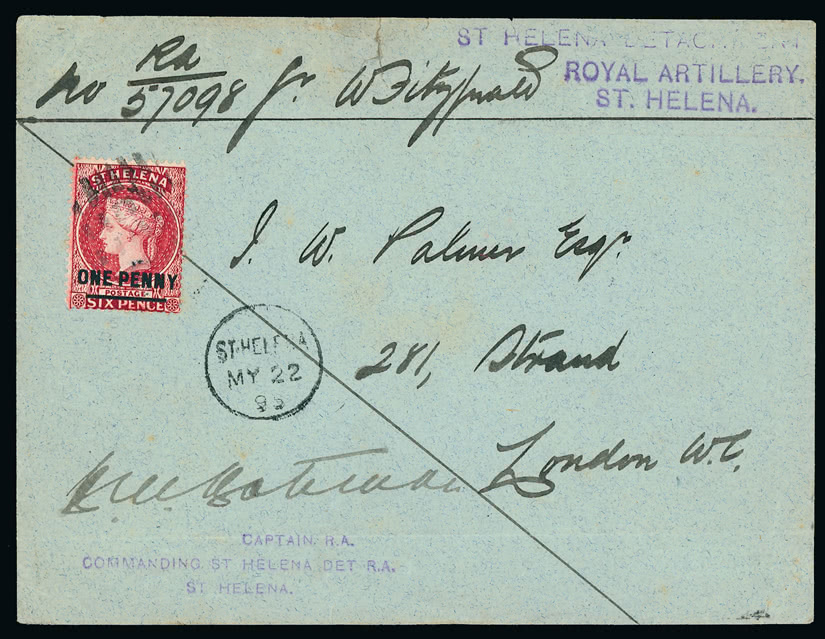 ST HELENA DETACHMENT
ROYAL ARTILLERY.
ST. HELENA.
No RA 57098 Gr. W Fitzgerald
ST HELENA
ONE PENNY
POSTAGE
SIX PENCE
J. W. Palmer Esqr.
281, Strand
London W.C.
ST. HELENA
MY 22
95
CAPTAIN R.A.
COMMANDING ST HELENA DET R.A.
ST HELENA.